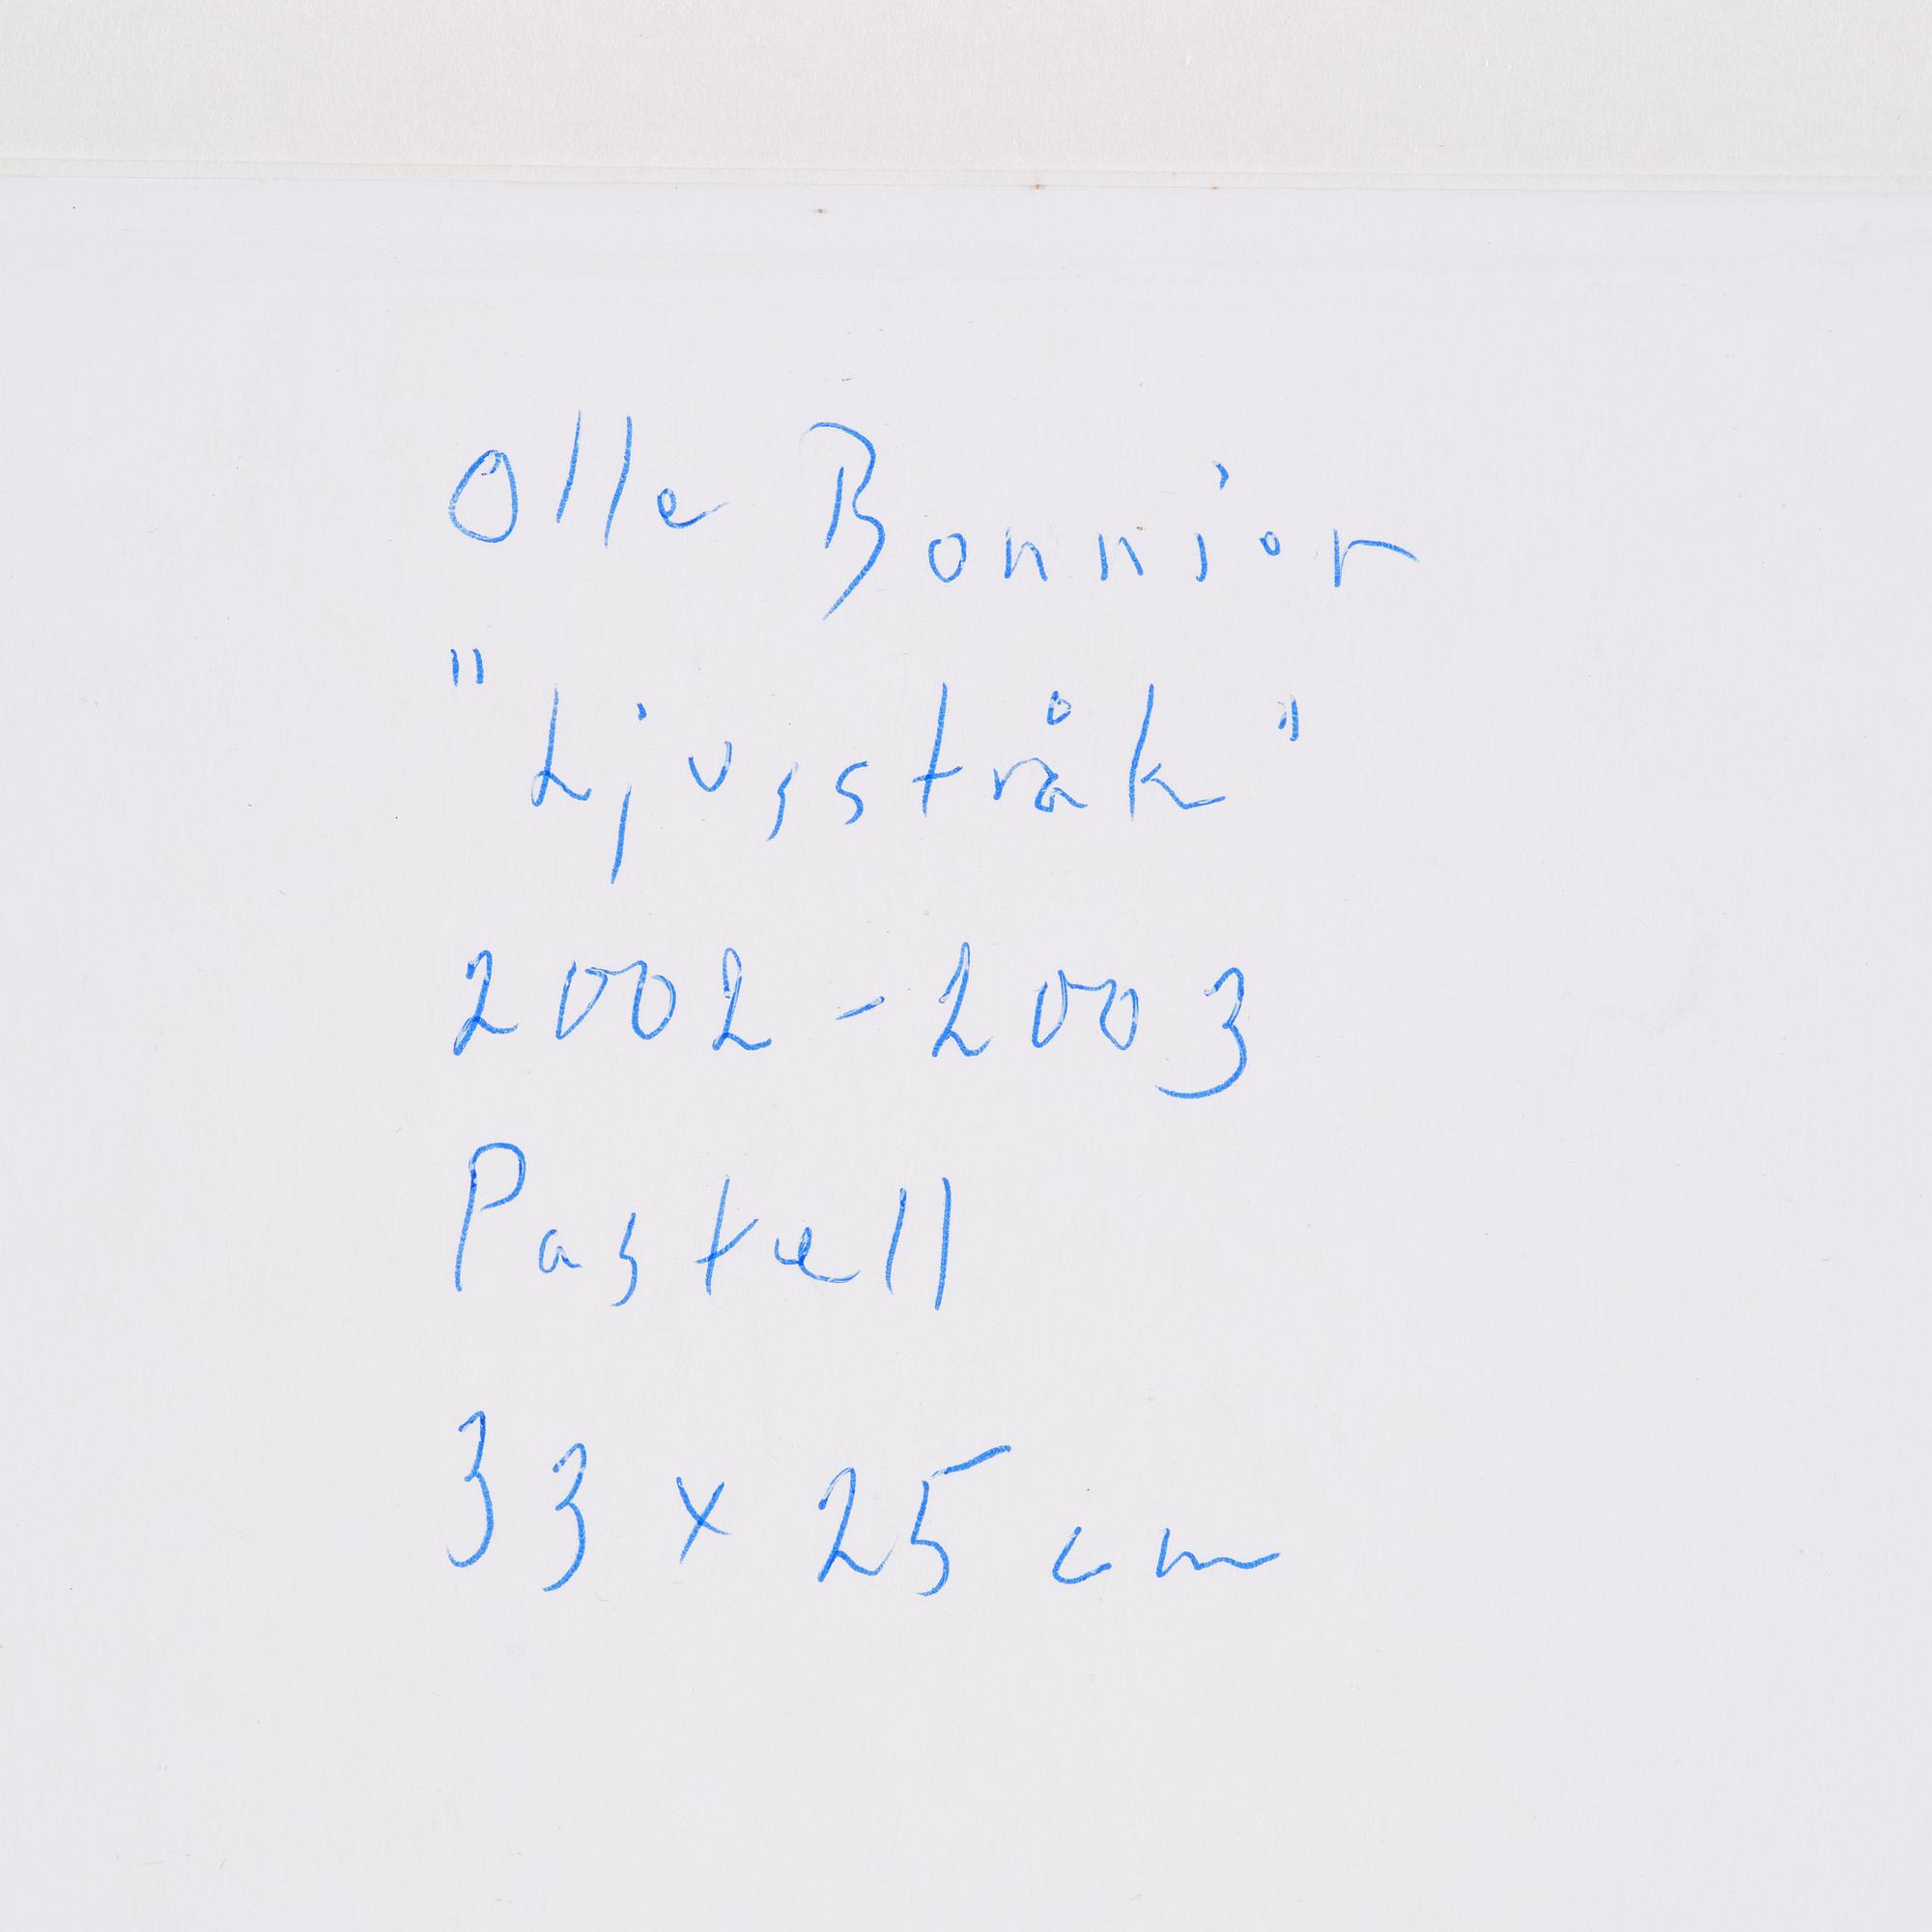 Olle Bonnier
"Ljusstråk"
2002-2003
Pastell
33 x 25 cm